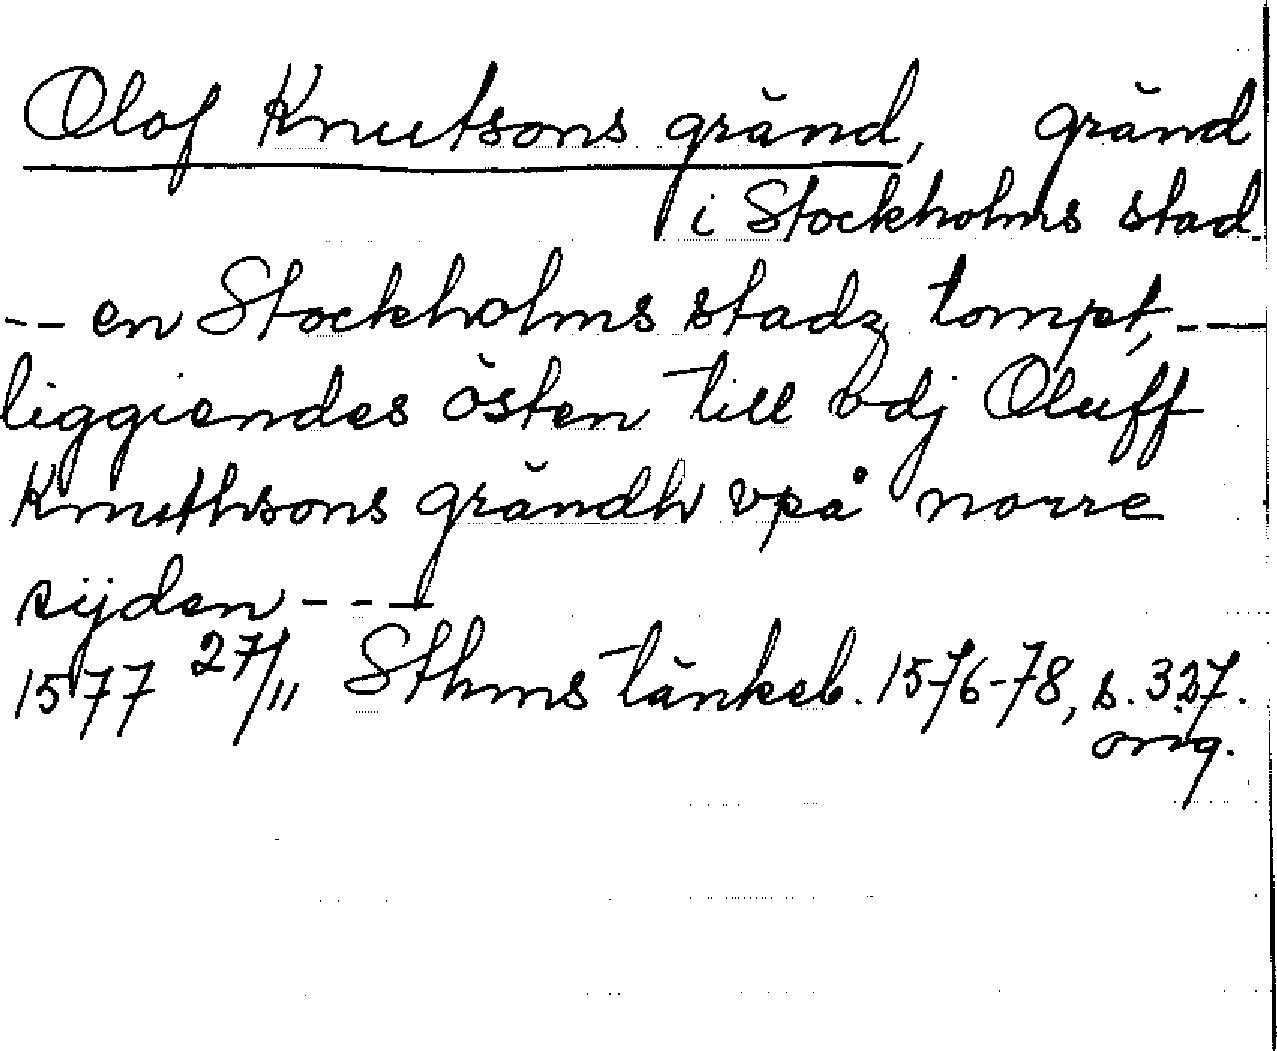 Olof Knutsons gränd, gränd
i Stockholms stad.
-- en Stockholms stadz tompt, --
liggiendes östen till vdj Oluff
Knuthsons grändh vpå norre
sijden ---
1577 27/11 Sthms tänkeb. 1576-78, s. 327.
orig.